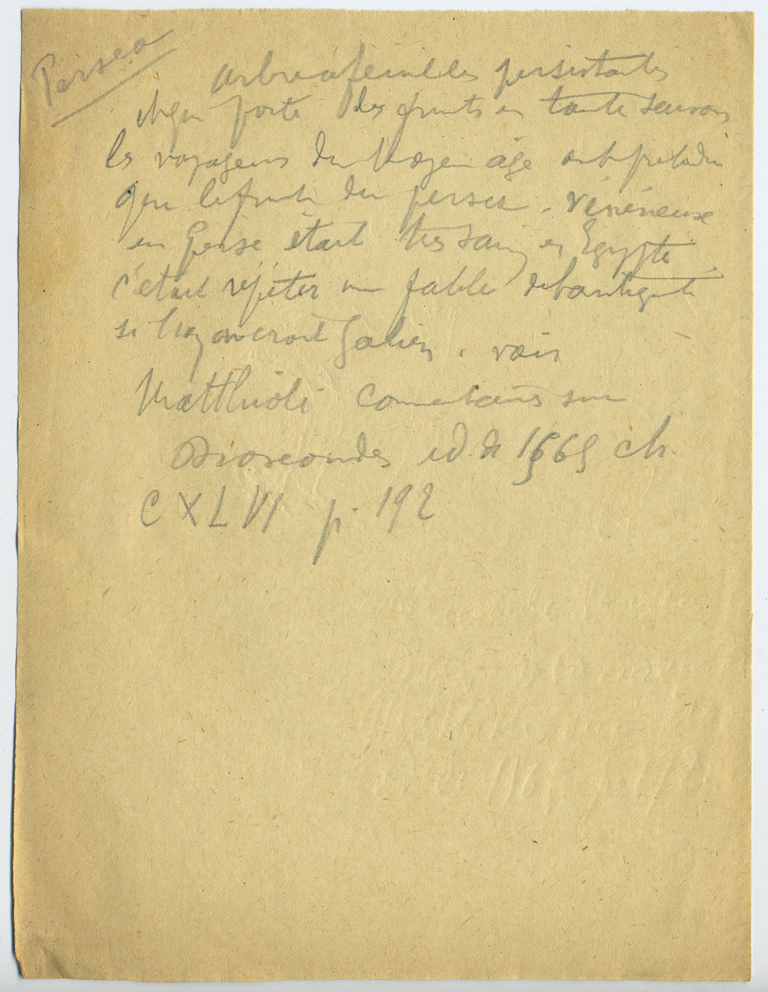 Persea
arbre à feuilles persistantes
et qui porte des fruits en toute saison
les voyageurs du Moyen age ont prétendu
que le fruit du persea, vénéneux
en Perse était très sain en Egypte
c'était répéter une fable de l'antiquité
si l'on en croit Galien. voir
Matthioli Commentaires sur
Dioscorides ed. de 1565 ch.
CXLVI p. 192